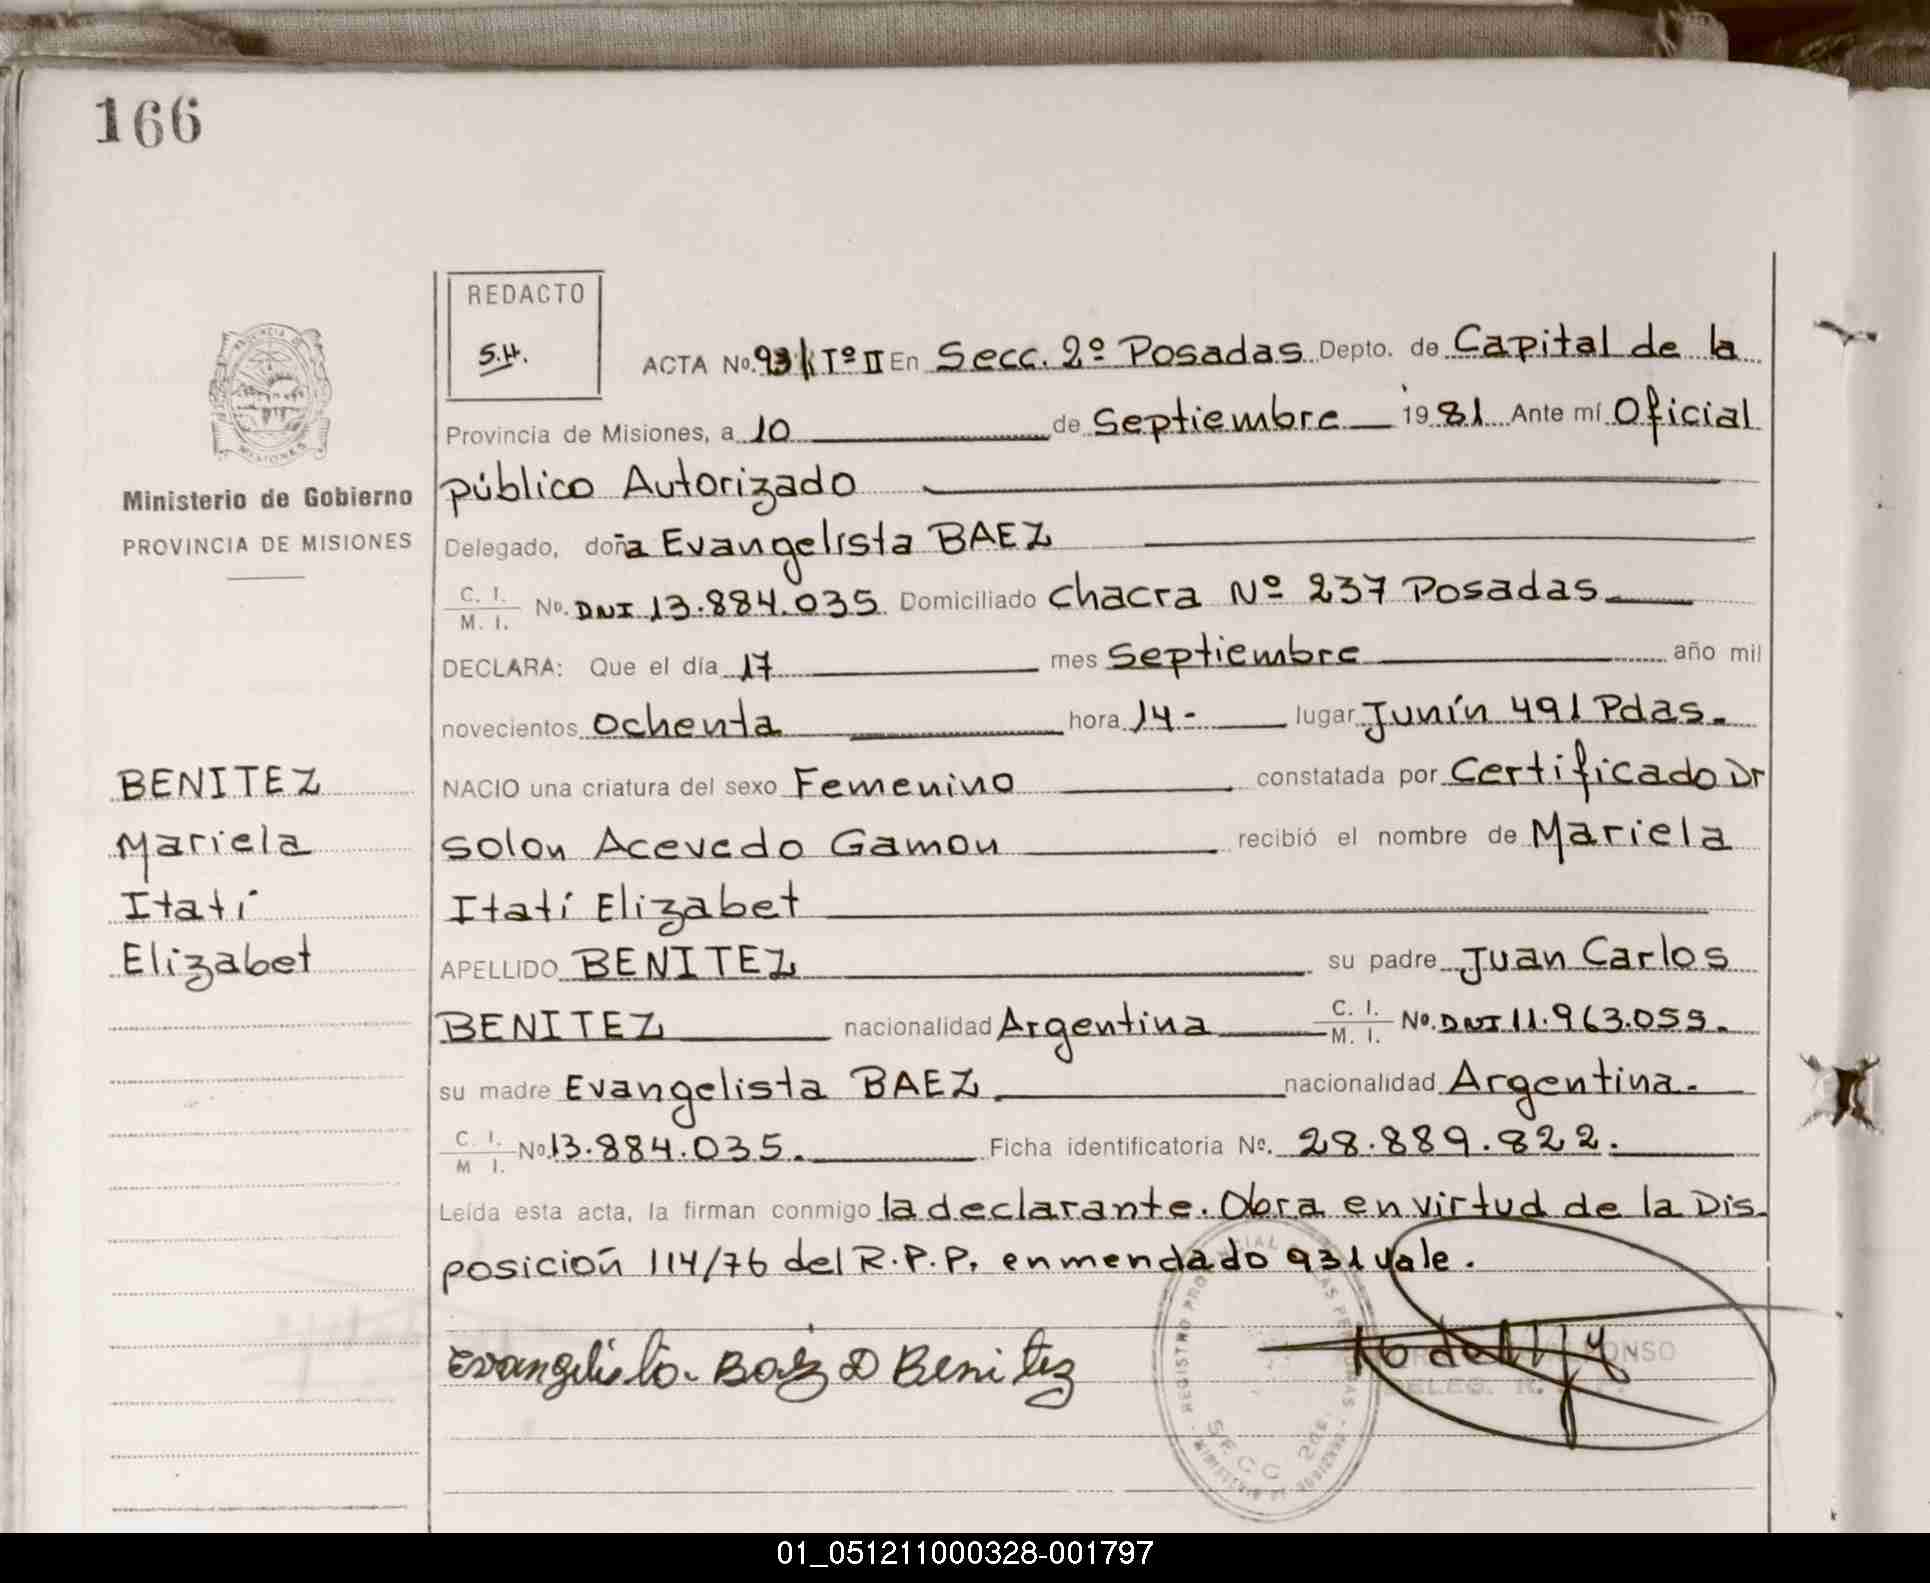 166
REDACTO
S.H.
ACTA No. 931 Tº II En Secc. 2º Posadas Depto. de Capital de la
Provincia de Misiones, a 10 de Septiembre 1981 Ante mí Oficial
público Autorizado
Delegado, doña Evangelista BAEZ
C. I. / M. I. No. DNI 13.884.035 Domiciliado Chacra Nº 237 Posadas
DECLARA: Que el día 17 mes Septiembre año mil
novecientos Ochenta hora 14- lugar Junín 491 Pdas.
NACIO una criatura del sexo Femenino constatada por Certificado Dr
Solon Acevedo Gamon recibió el nombre de Mariela
Itatí Elizabet
APELLIDO BENITEZ su padre Juan Carlos
BENITEZ nacionalidad Argentina C. I. / M. I. No. DNI 11.963.059.
su madre Evangelista BAEZ nacionalidad Argentina.
C. I. / M I. No 13.884.035. Ficha identificatoria Nº. 28.889.822.
Leída esta acta, la firman conmigo la declarante. Obra en virtud de la Dis-
posición 114/76 del R.P.P. enmendado 931 vale.
Evangelista Baez D Benitez
PROVINCIA DE
MISIONES
Ministerio de Gobierno
PROVINCIA DE MISIONES
BENITEZ
Mariela
Itatí
Elizabet
SECC 2da.
01_051211000328-001797